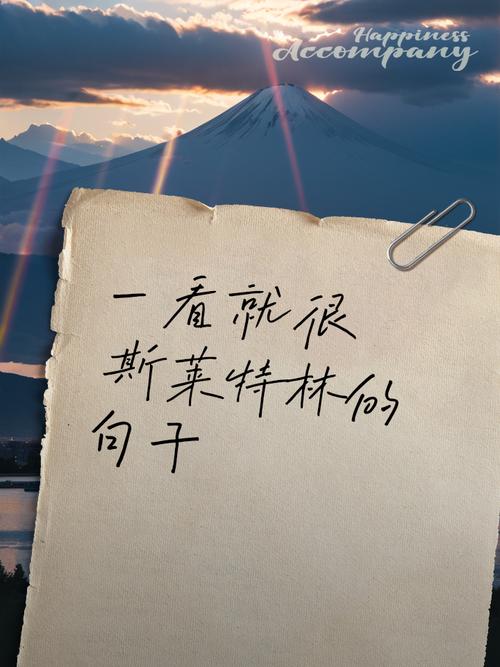 Happiness
Accompany
一看就很
斯莱特林的
句子